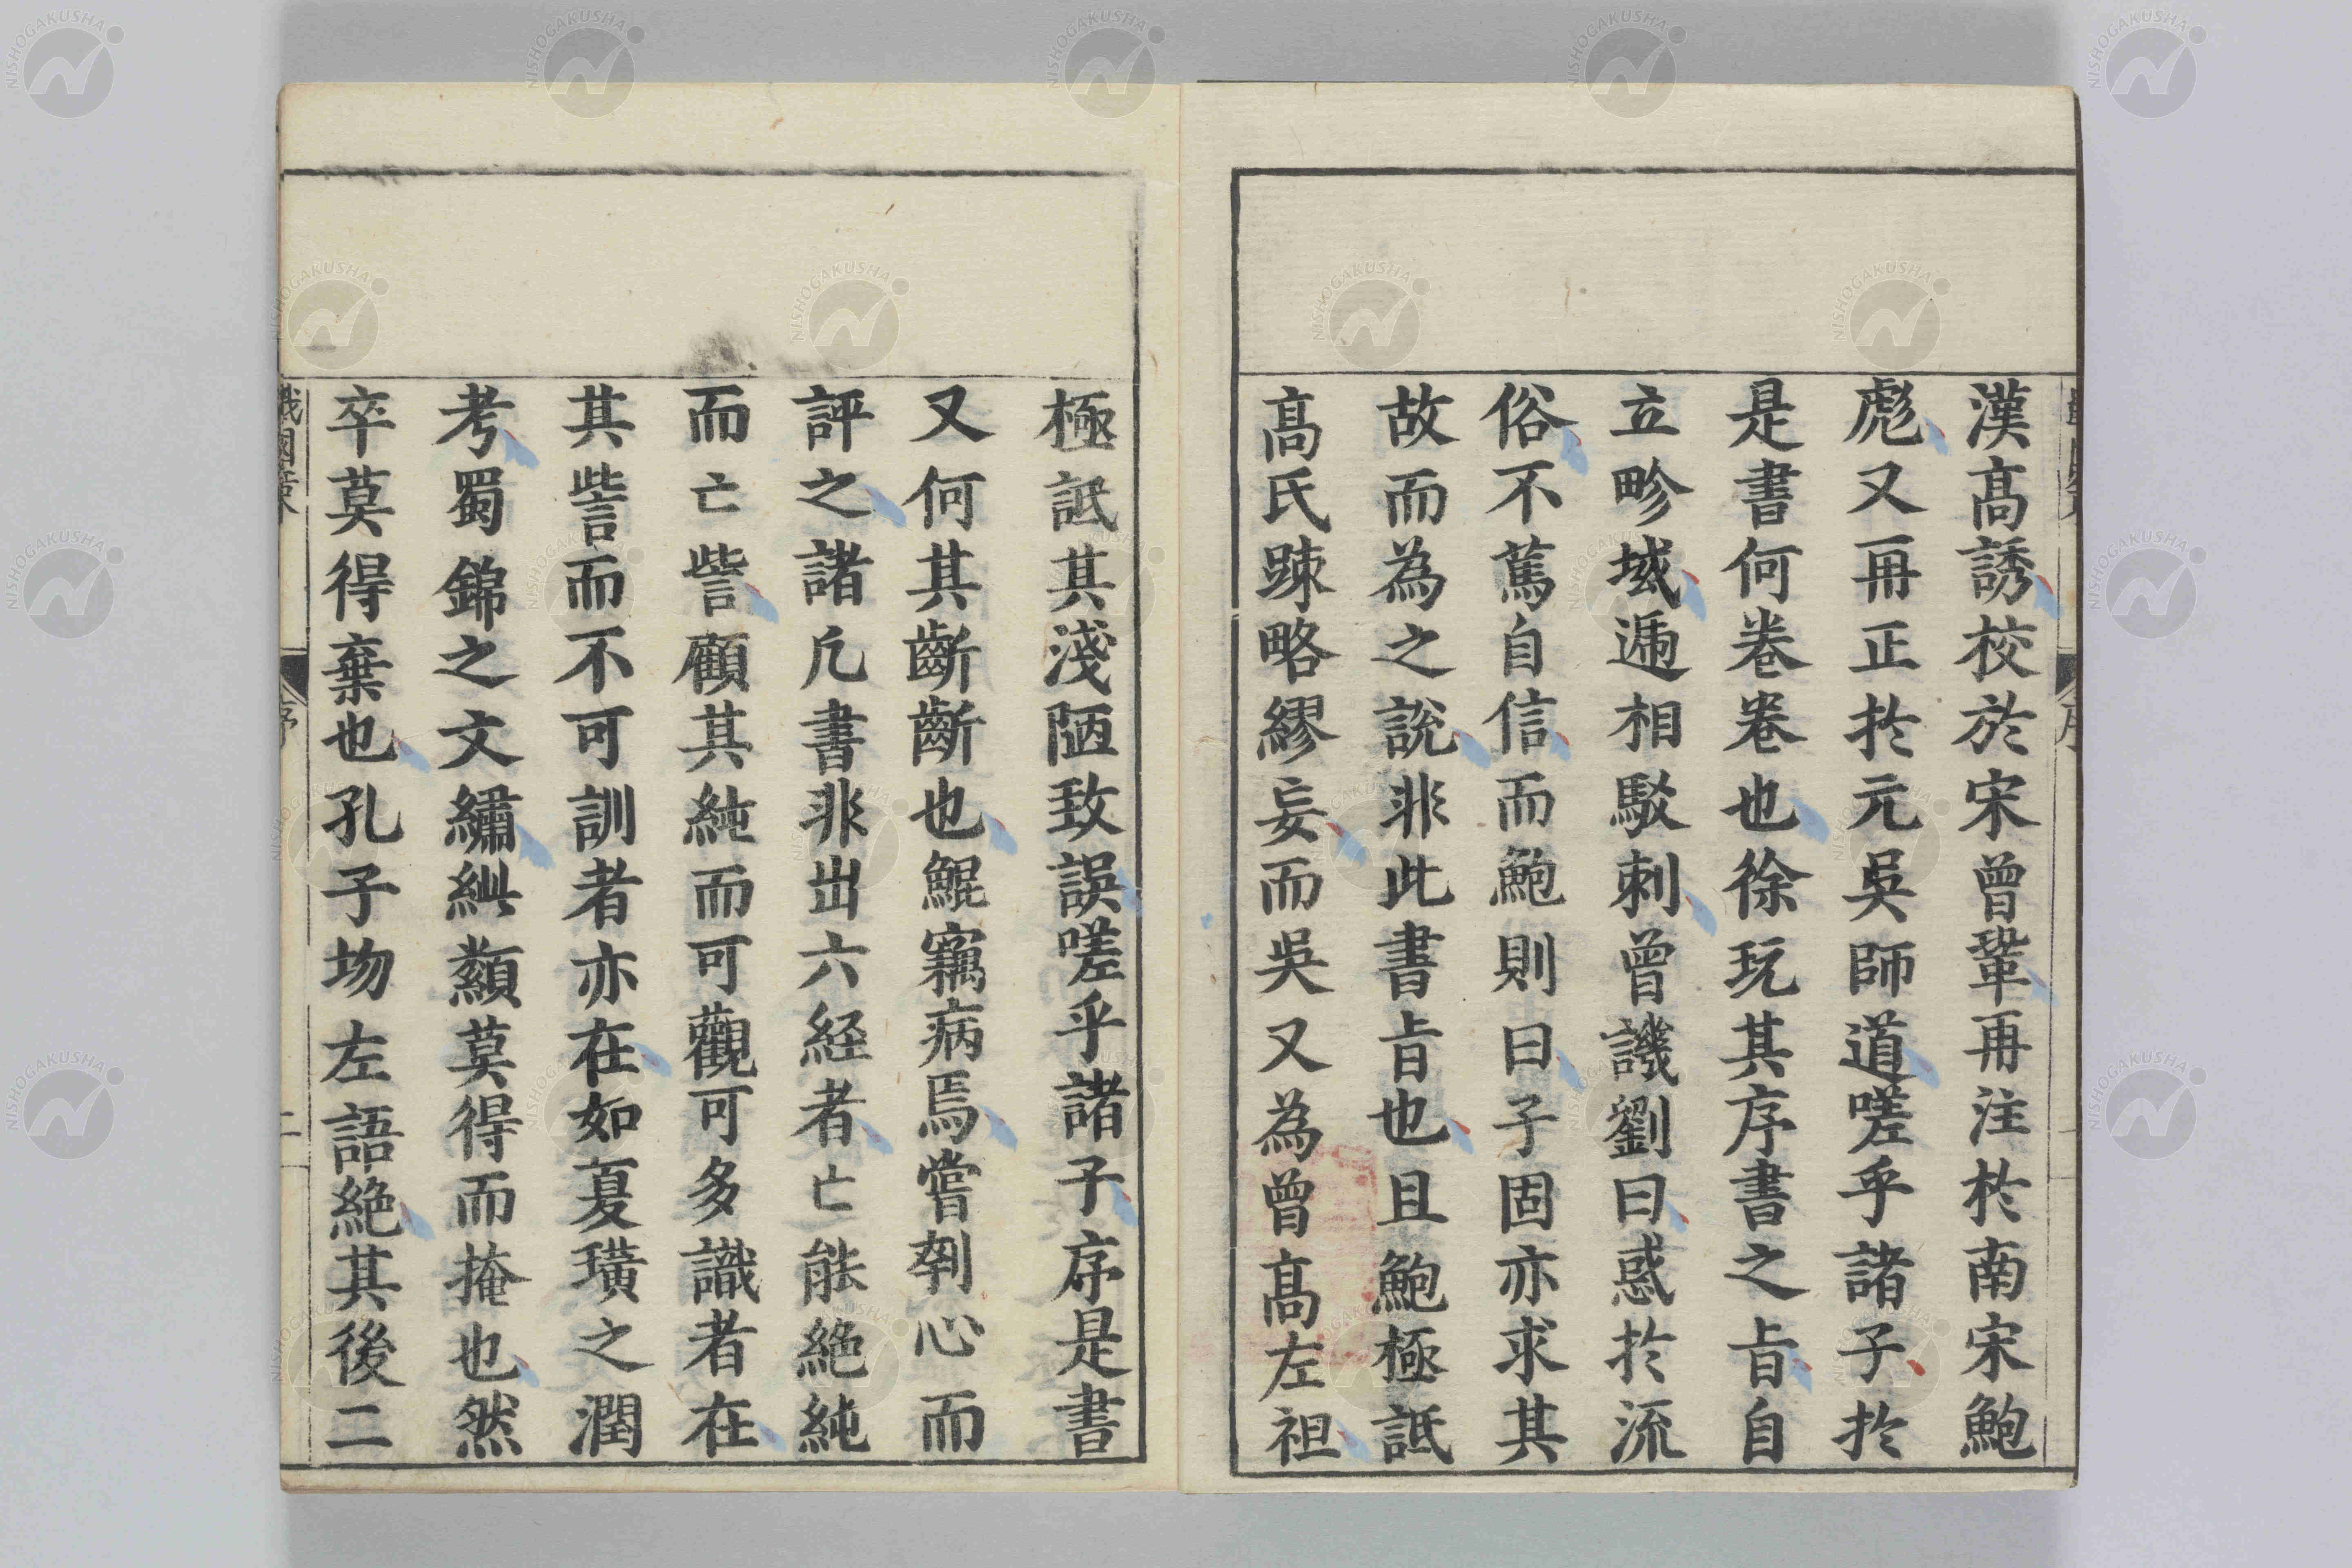 漢髙誘校於宋曾鞏再注扵南宋鮑
彪又再正扵元吳師道嗟乎諸子扵
是書何卷卷也徐玩其序書之㫖自
立畛域逓相駁刺曾譏劉曰惑扵流
俗不篤自信而鮑則曰子固亦求其
故而為之說非此書㫖也且鮑極詆
髙氏踈略繆妄而吳又為曾髙左袒
極詆其淺陋致誤嗟乎諸子序是書
又何其齗齗也鯤竊病焉嘗刳心而
評之諸凡書非出六経者亡能絶純
而亡訾顧其純而可觀可多識者在
其訾而不可訓者亦在如夏璜之潤
考蜀錦之文繡紕纇莫得而掩也然
卒莫得棄也孔子歾左語絶其後二
戰國策
序
二
NISHOGAKUSHA